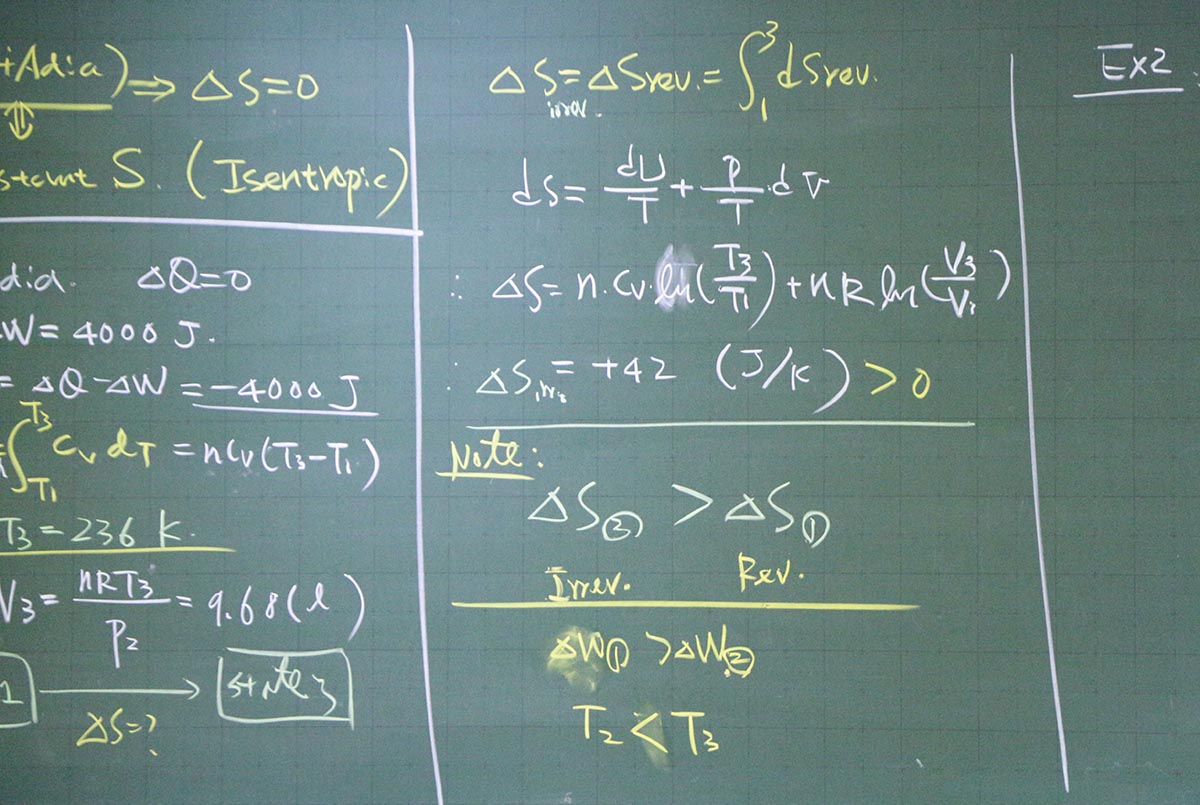 +Adia) ⇒ ΔS=0
⇕
stant S. (Isentropic)
dia. ΔQ=0
W= 4000 J.
= ΔQ-ΔW = -4000 J
∫_{T1}^{T3} Cv dT = nCv(T3-T1)
T3=236 K.
V3= nRT3/P2 = 9.68(l)
1 → state 3
ΔS=?
ΔS_{irrev.}=ΔSrev.=∫_1^3 dSrev.
dS= dU/T + P/T · dV
∴ ΔS= n·Cv·ln(T3/T1)+nR ln(V3/V1)
∴ ΔS_{irr.} = +42 (J/K) >0
Note:
ΔS② > ΔS①
Irrev. Rev.
ΔW① >ΔW②
T2 < T3
Ex2.